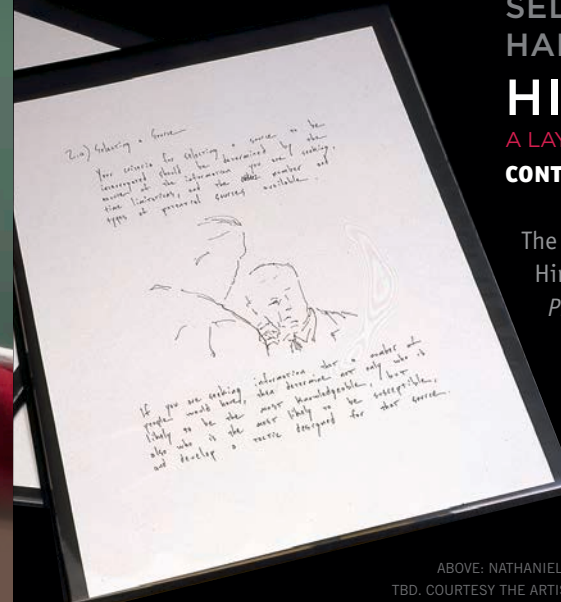 2.a) Selecting a Source
Your criteria for selecting a source to be
interrogated should be determined by the
nature of the information you are seeking,
time limitations, and the number and
types of potential sources available.
If you are seeking information that a number of
people would have, then determine not only who is
likely to be the most knowledgeable, but
also who is the most likely to be susceptible,
and develop a tactic designed for that source.
SEL
HAN
HI
A LAY
CONT
The
Hir
P
ABOVE: NATHANIEL
TBD. COURTESY THE ARTIS